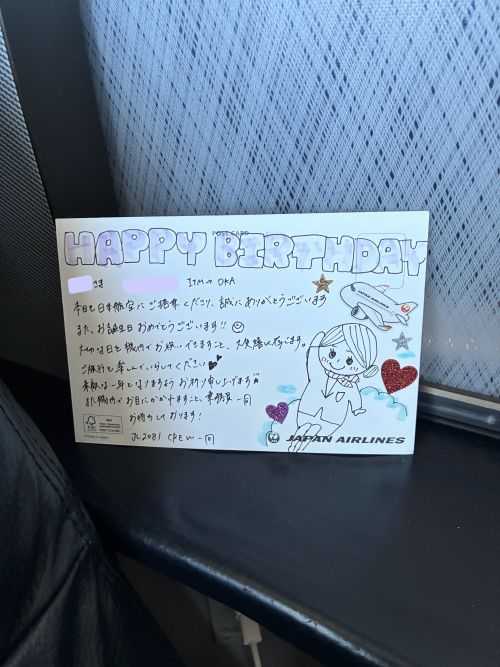 POST CARD
HAPPY BIRTHDAY
さま ITM→OKA
本日も日本航空にご搭乗くださり、誠にありがとうございます
また、お誕生日おめでとうございます!!
大切な日を機内でお祝いできますこと、大変嬉しく存じます。
ご旅行を楽しんでいらしてください
素敵な一年となりますようお祈り申し上げます
また機内でお目にかかれますこと、乗務員一同
お待ちしております!
JL2081 crew一同
FSC
JAPAN AIRLINES
JAPAN AIRLINES